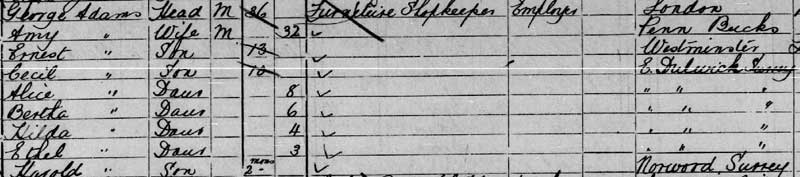 George Adams Head M 36 Furniture Shopkeeper Employs London
Amy " Wife M 32 Penn Bucks
Ernest " Son 13 Westminster
Cecil " Son 10 E. Dulwich Surrey
Alice " Daur 8 " " "
Bertha " Daur 6 " " "
Hilda " Daur 4 " " "
Ethel " Daur 3 " " "
Harold " Son 2 mons Norwood Surrey